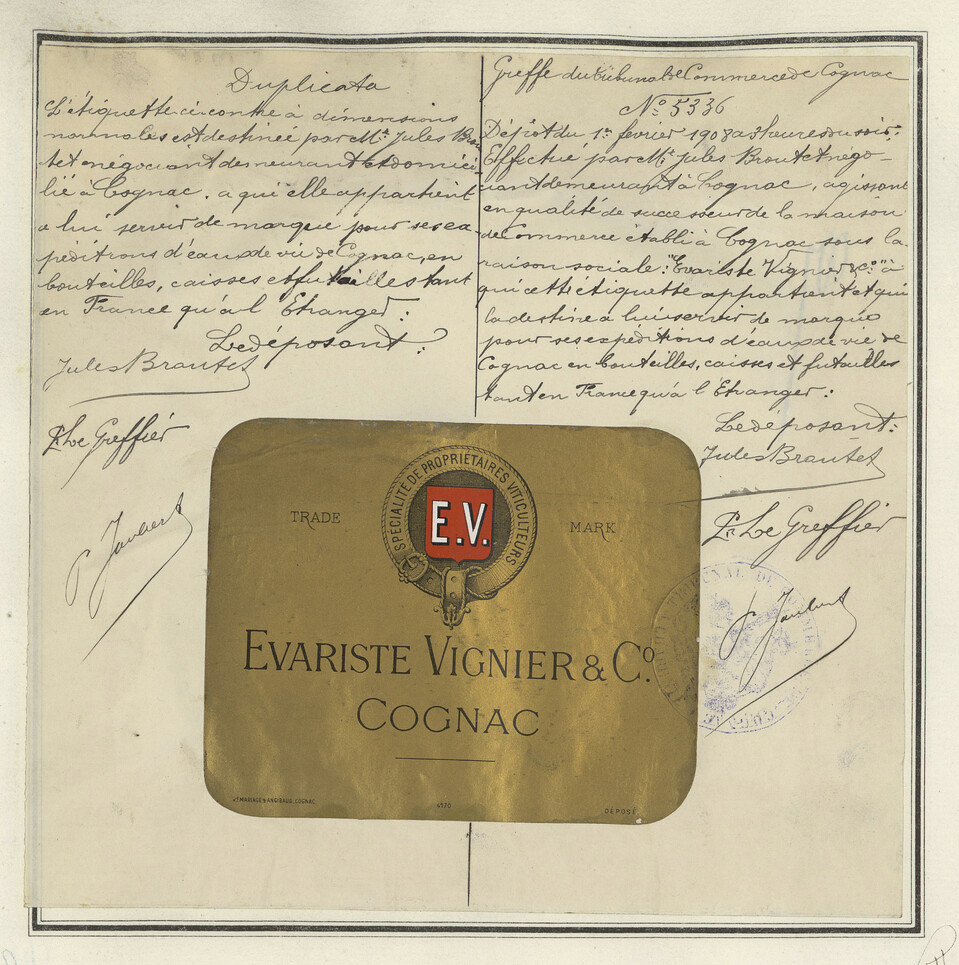 Duplicata
L'étiquette ci contre à dimensions
normales est destinée par Mr. Jules Brou
tet négociant demeurant et domici
lié à Cognac, a qui elle appartient
a lui servir de marque pour ses ex
péditions d'eaux de vie de Cognac, en
bouteilles, caisses et futailles tant
en France qu'à l'Etranger:
Le déposant:
Jules Brautet
Pr. Le Greffier
Greffe du tribunal de Commerce de Cognac
No 5336
Dépôt du 1er février 1908 a 3 heures du soir:
Effectué par Mr. Jules Broutet négo-
ciant demeurant à Cognac, agissant
en qualité de successeur de la maison
de Commerce établi à Cognac sous la
raison sociale: "Evariste Vignier & Co" à
qui cette étiquette appartient et qui
la destine à lui servir de marque
pour ses expéditions d'eaux de vie de
Cognac en bouteilles, caisses et futailles
tant en France qu'à l'Etranger:
Le déposant:
Jules Brautet
Pr. Le Greffier
SPÉCIALITÉ DE PROPRIÉTAIRES VITICULTEURS
TRADE E.V. MARK
EVARISTE VIGNIER & Co.
COGNAC
4170
DÉPOSÉ